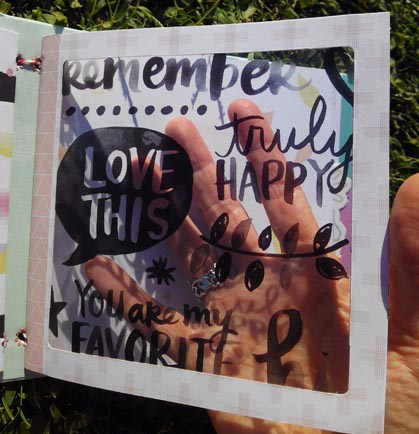 remember
truly
HAPPY
LOVE
THIS
You are my
FAVORIT
h